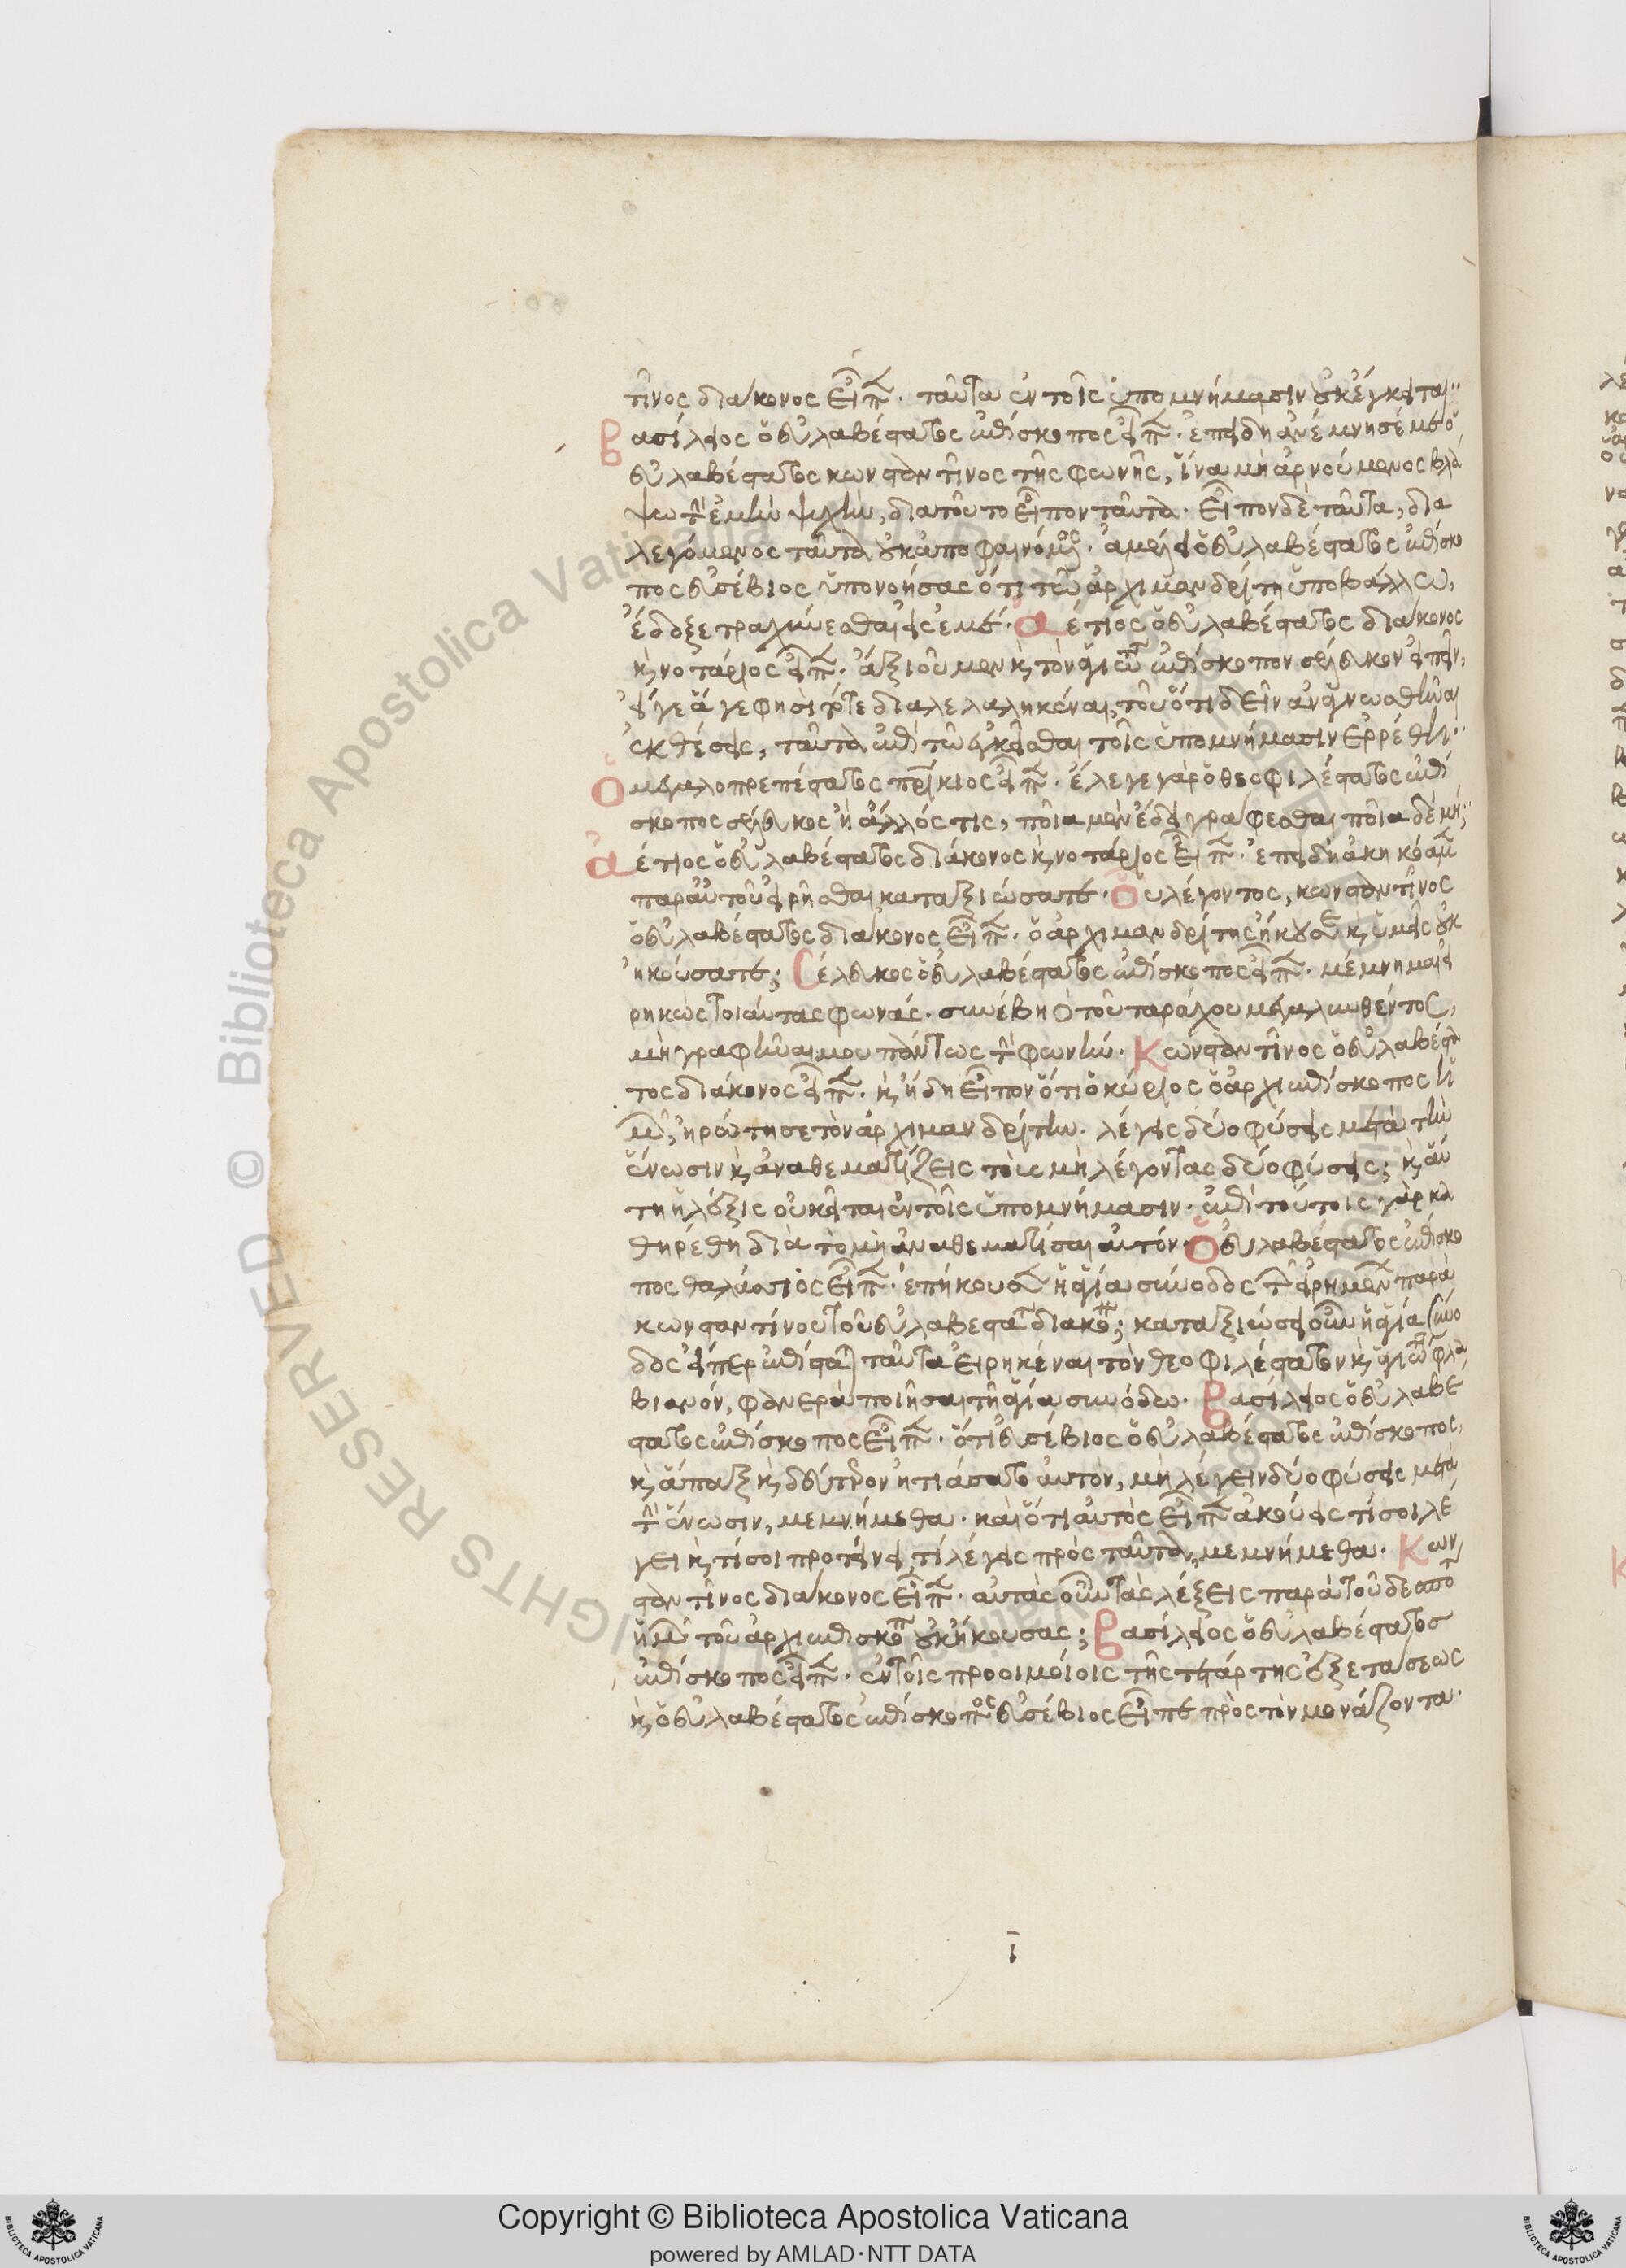 τῖνος διάκονος εἶπ. ταῦτα ἐν τοῖς ὑπομνήμασιν οὐκ ἔγκειται.
Βασίλειος ὁ εὐλαβέστατος ἐπίσκοπος εἶπ. ἐπειδὴ ἀνέμνησέ με ὁ
εὐλαβέστατος κωνσταντῖνος τῆς φωνῆς, ἵνα μὴ ἀρνούμενος βλά
ψω τὴν ἐμὴν ψυχὴν, διατοῦτο εἶπον ταῦτα. εἶπον δὲ ταῦτα, δια
λεγόμενος ταῦτα οὐκ ἀποφαινόμενος. ἀμέλει ὁ εὐλαβέστατος ἐπίσκο
πος εὐσέβιος ὑπονοήσας ὅτι τῷ ἀρχιμανδρίτῃ ὑποβάλλω,
ἔδοξε τραχύνεσθαι εἰς ἐμέ. Ἀέτιος ὁ εὐλαβέστατος διάκονος
κ νοτάριος εἶπ. ἀξιοῦμεν κ τὸν ἁγιωτ ἐπίσκοπον σέλευκον εἰπεῖν,
εἴγε ἅ γε φησί ποτε διαλελαληκέναι, τοῦ ὅτι δεῖν ἀναγνωσθῆναι
ἐκθέσεις, ταῦτα ἐπὶ τῷ ἐγκεῖσθαι τοῖς ὑπομνήμασιν ἐρρέθη.
Ὁ μεγαλοπρεπέστατος πρίκιος εἶπ. ἔλεγε γὰρ ὁ θεοφιλέστατος ἐπί
σκοπος σέλευκος ἢ ἄλλός τις, ποῖα μὲν ἔδει γράφεσθαι ποῖα δὲ μή;
Ἀέτιος ὁ εὐλαβέστατος διάκονος κ νοτάριος εἶπ. ἐπειδὴ ἀκηκόαμ
παρ' αὐτοῦ εἰρῆσθαι καταξιώσατε. Οὗ λέγοντος, κωνσταντῖνος
ὁ εὐλαβέστατος διάκονος εἶπ. ὁ ἀρχιμανδρίτης ἤκουσε κ ὑμεῖς οὐκ
ἠκούσατε; Σέλευκος ὁ εὐλαβέστατος ἐπίσκοπος εἶπ. μέμνημαι εἰ
ρηκὼς τοιαύτας φωνάς. συνέβη ὑπὸ τοῦ ταράχου μεγαλυνθέντος,
μὴ γραφῆναί μου πάντως τὴν φωνήν. Κωνσταντῖνος ὁ εὐλαβέστα
τος διάκονος εἶπ. κ ἤδη εἶπον ὅτι ὁ κύριος ὁ ἀρχιεπίσκοπος ἡ
μῶν, ἠρώτησε τὸν ἀρχιμανδρίτην. λέγεις δύο φύσεις μετὰ τὴν
ἕνωσιν κ ἀναθεματίζεις τοὺς μὴ λέγοντας δύο φύσεις; κ αὕ
τη ἡ λέξις οὐ κεῖται ἐν τοῖς ὑπομνήμασιν. ἐπὶ τούτοις γὰρ κα
θηρέθη διὰ τὸ μὴ ἀναθεματίσαι αὐτόν. Ὁ εὐλαβέστατος ἐπίσκο
πος θαλάσσιος εἶπ. ἐπήκουσεν ἡ ἁγία σύνοδος τῶν εἰρημένων παρὰ
κωνσταντίνου τοῦ εὐλαβεστατ διακον; καταξιώσει οὖν ἡ ἁγία σύνο
δος εἴπερ ἐπίσταται ταῦτα εἰρηκέναι τὸν θεοφιλέστατον κ ἁγιωτ φλα
βιανόν, φανερὰ ποιῆσαι τῇ ἁγίᾳ συνόδω. Βασίλειος ὁ εὐλαβέ
στατος ἐπίσκοπος εἶπ. ὅτι εὐσέβιος ὁ εὐλαβέστατος ἐπίσκοπος,
κ ἅπαξ κ δεύτερον ᾐτιάσατο αὐτὸν, μὴ λέγειν δύο φύσεις μετὰ
τὴν ἕνωσιν, μεμνήμεθα. καὶ ὅτι αὐτὸς εἶπ ἀκούεις τί σοι λέ
γει κ τί σοι προτείνει, τί λέγεις πρὸς ταῦτα, μεμνήμεθα. Κων
σταντῖνος διάκονος εἶπ. αὐτὰς οὖν τὰς λέξεις παρὰ τοῦ δεσπό
ἡμῶν τοῦ ἀρχιεπισκόπ οὐκ ἤκουσας; Βασίλειος ὁ εὐλαβέστατος
ἐπίσκοπος εἶπ. ἐν τοῖς προοιμίοις τῆς τετάρτης ἐξετάσεως
κ ὁ εὐλαβέστατος ἐπίσκοπος εὐσέβιος εἶπε πρὸς τὸν μονάζοντα.
ι
Copyright © Biblioteca Apostolica Vaticana
powered by AMLAD·NTT DATA